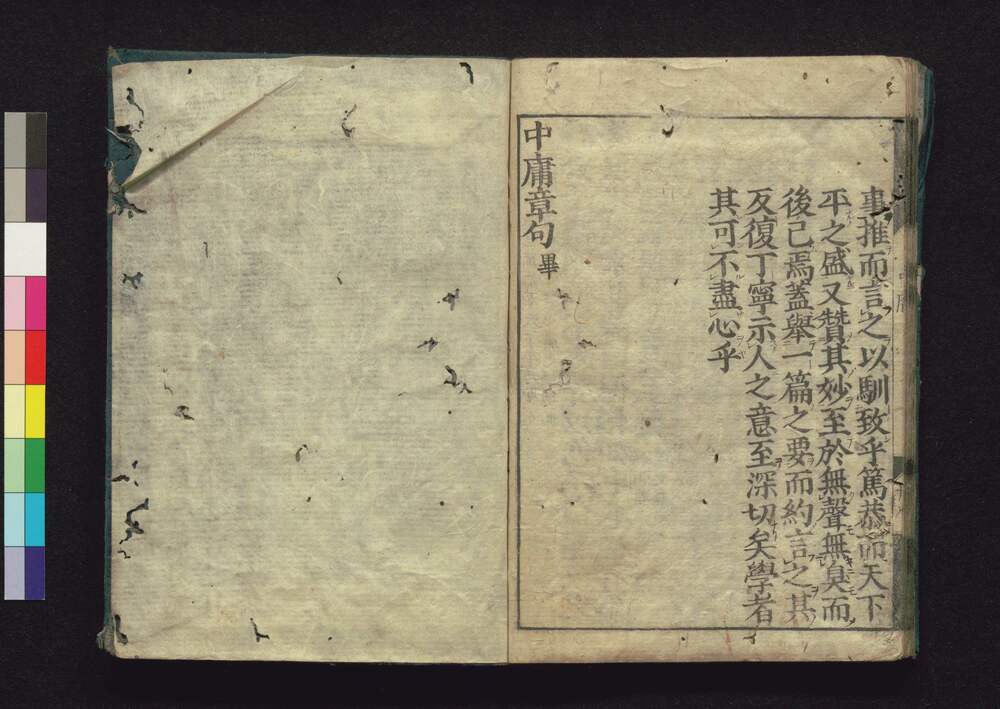 事推而言之以馴致乎篤恭而天下
平之盛又贊其妙至於無聲無臭而
後已焉蓋舉一篇之要而約言之其
反復丁寧示人之意至深切矣學者
其可不盡心乎
中庸章句 畢